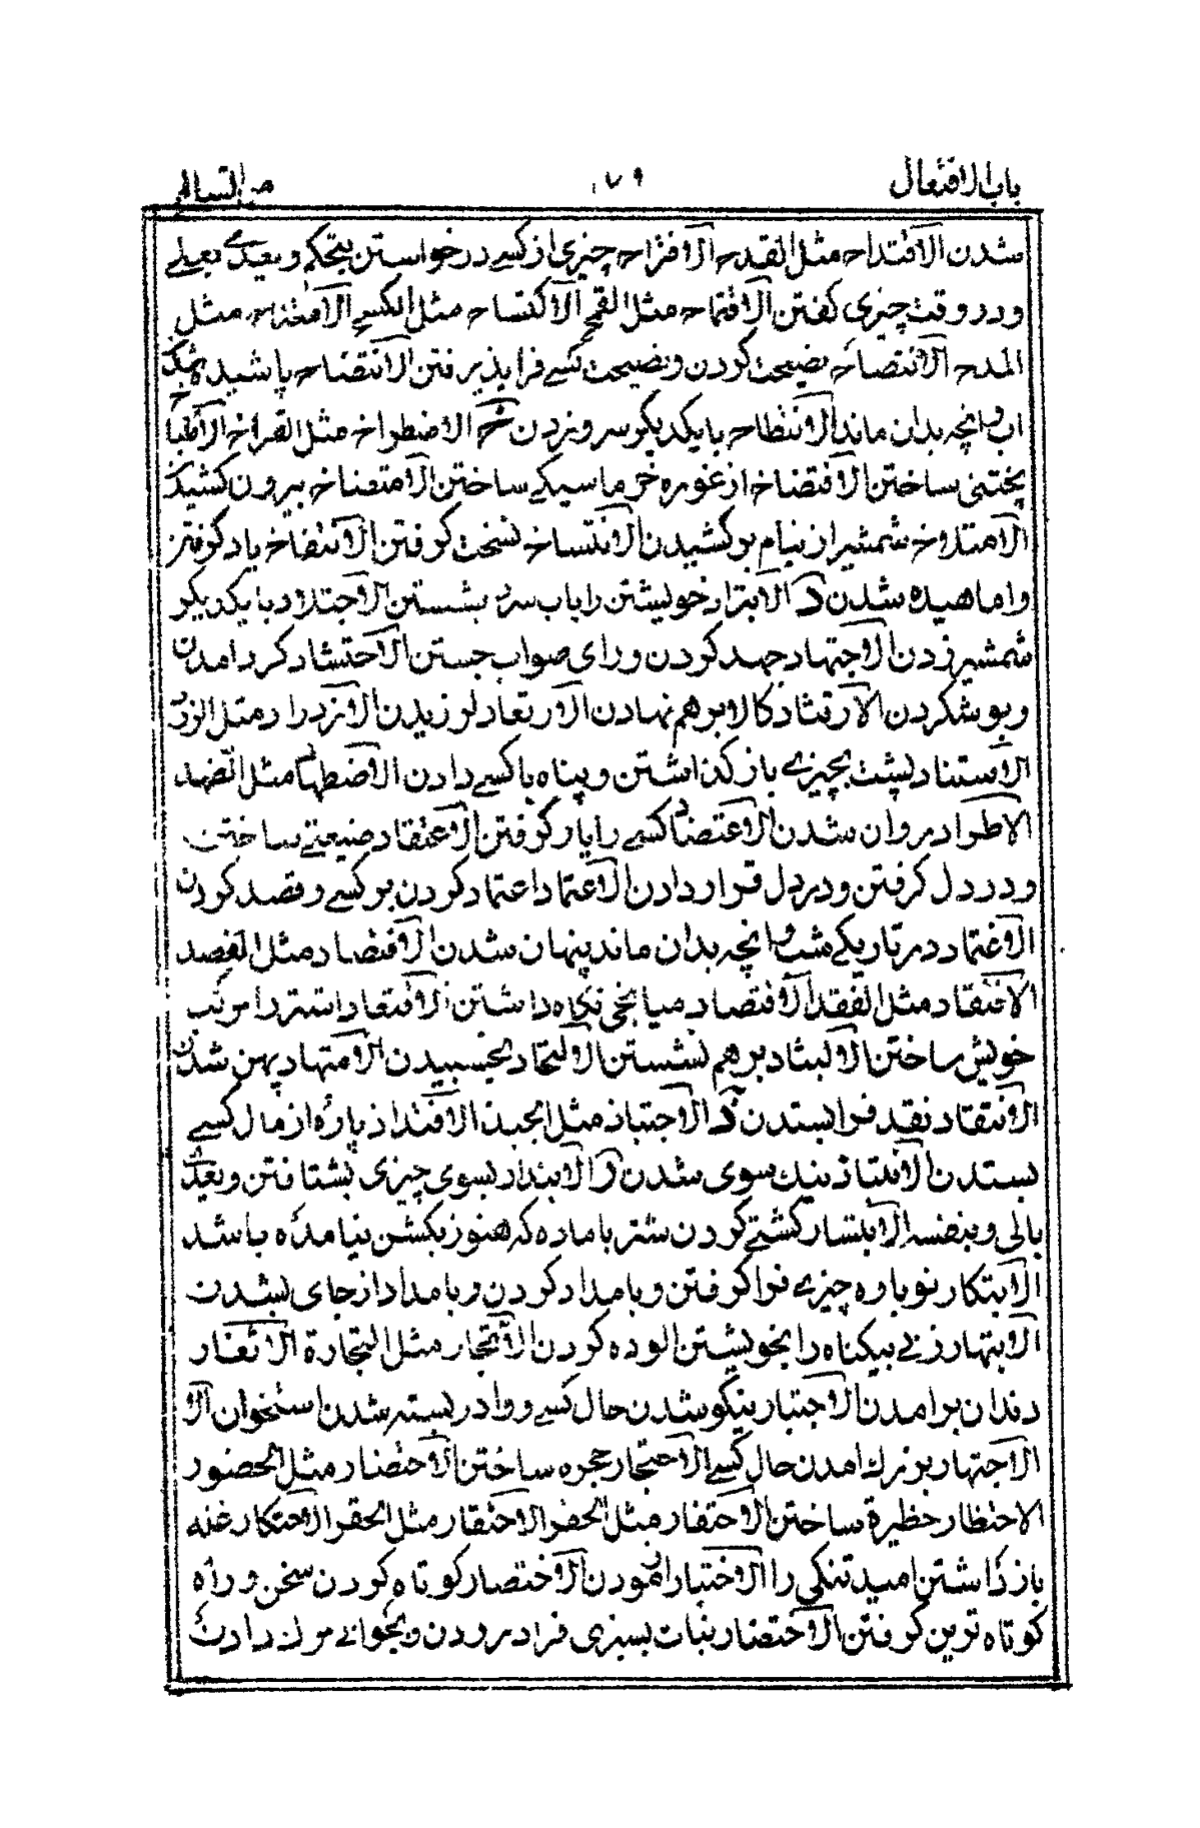 باب الافتعال ١٧٩ من السالم
شدن الاقتداح مثل القدح الاقتراح چیزی از کسے درخواستن بتحکم و یعدی بعلی
و در وقت چیزی گفتن الاقتماح مثل القمح الاکتساح مثل الکسح الامتداح مثل
المدح الانتصاح نصیحت کردن و نصیحت کسے فرا پذیرفتن الانتضاح پاشیده شدن
اب و انچه بدان ماند الانتطاح بایکدیگر سرو زدن خ الاضطراخ مثل الصراخ الاطباخ
پختنی ساختن الافتضاخ از غوره خرما سیکے ساختن الامتصاخ بیرون کشیدن
الامتلاخ شمشیر از نیام برکشیدن الانتساخ نسخت گرفتن الانتفاخ باد گرفتن
و اماهیده شدن د الابتراد خویشتن را باب سرد بشستن الاجتلاد بایکدیگر
شمشیر زدن الاجتهاد جهد کردن و رای صواب جستن الاحتشاد گرد امدن
و بوشکردن الارتثاد کالا بر هم نهادن الارتعاد لرزیدن الازدراد مثل الزرد
الاستناد پشت بچیزے باز گذاشتن و پناه با کسے دادن الاضطهاد مثل الضهد
الاطراد روان شدن الاعتضاد کسے را یار گرفتن الاعتقاد ضیعتے ساختن
و در دل گرفتن و در دل قرار دادن الاعتماد اعتماد کردن بر کسے و قصد کردن
الاغتماد در تاریکے شب و انچه بدان ماند پنهان شدن الافتصاد مثل الفصد
الافتقاد مثل الفقد الاقتصاد میانجی نگاه داشتن الاقتعاد اشتر را مرکب
خویش ساختن الالتباد بر هم نشستن الالتحاد بخسبیدن الامتهاد پهن شدن
الانتقاد نقد فرا بستدن ذ الاجتباذ مثل الجبذ الافتلاذ پاره از مال کسے
بستدن الانتباذ بیک سوی شدن ر الابتدار بسوی چیزی بشتافتن و یعدی
بالی و بنفسه الابتسار گشتے کردن شتر با ماده که هنوز بگشن نیامده باشد
الابتکار نوباوه چیزے فرا گرفتن و بامداد کردن و بامداد از جای بشدن
الابتهار زنے بیگناه را بخویشتن الوده کردن الاتجار مثل التجارة الاثغار
دندان برامدن الاجتبار نیکو شدن حال کسے و وا در بسته شدن استخوان
الاجتهار بزرك امدن حال کسے الاحتجار حجره ساختن الاحتضار مثل الحضور
الاحتظار حظیرة ساختن الاحتفار مثل الحفر الاحتقار مثل الحقر الاحتکار غله
باز داشتن امید تنگی را الاختبار ازمودن الاختصار کوتاه کردن سخن و راه
کوتاه ترین گرفتن الاختضار نبات بسبزی فرا درودن و بجوانے مرك دادن